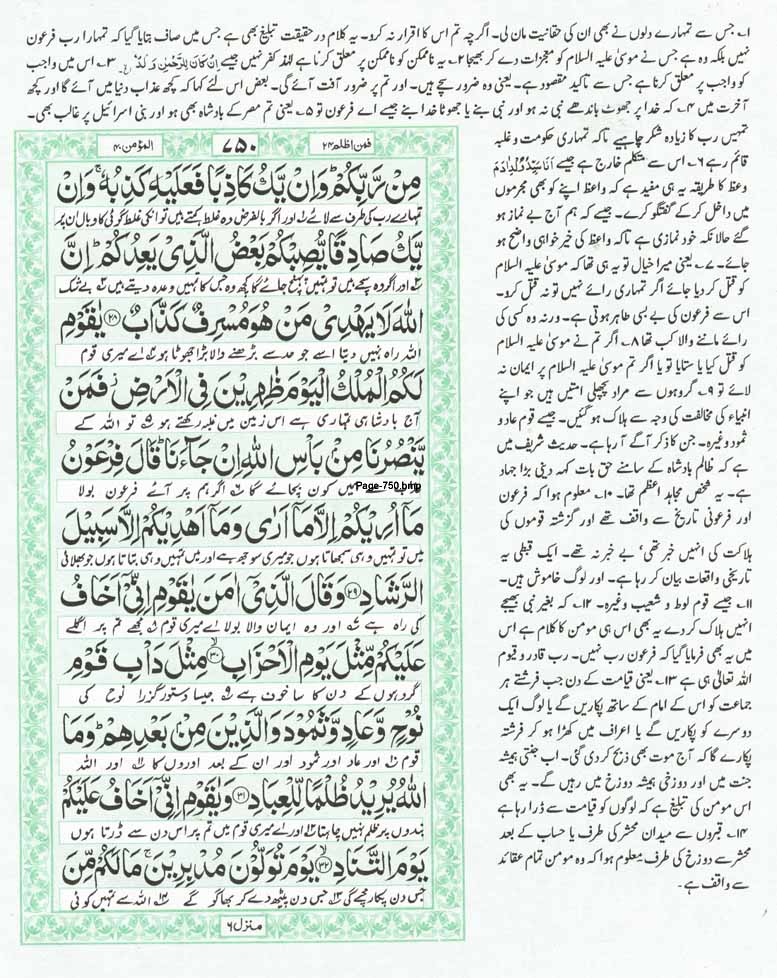 ۱۔ جس سے تمہارے دلوں نے بھی ان کی حقانیت مان لی۔ اگرچہ تم اس کا اقرار نہ کرو۔ یہ کلام در حقیقت تبلیغ بھی ہے جس میں صاف بتایا گیا کہ تمہارا رب فرعون
نہیں بلکہ وہ ہے جس نے موسیٰ علیہ السلام کو معجزات دے کر بھیجا ۲۔ یہ ناممکن کو ناممکن پر معلق کرنا ہے لہٰذا کفر نہیں جیسے اِنْ كَانَ لِلرَّحْمٰنِ وَلَدٌ ۳۔ اس میں واجب
کو واجب پر معلق کرنا ہے جس سے تاکید مقصود ہے۔ یعنی وہ ضرور سچے ہیں۔ اور تم پر ضرور آفت آئے گی۔ بعض اس لئے کہا کہ کچھ عذاب دنیا میں آئے گا اور کچھ
آخرت میں ۴۔ کہ خدا پر جھوٹ باندھے نبی نہ ہو اور نبی بنے یا جھوٹا خدا بنے جیسے اے فرعون تو ۵۔ یعنی تم مصر کے بادشاہ بھی ہو اور بنی اسرائیل پر غالب بھی۔
تمہیں رب کا زیادہ شکر چاہیے تاکہ تمہاری حکومت و غلبہ
قائم رہے ۶۔ اس سے متکلم خارج ہے جیسے اَنَا سَیِّدُ وُلْدِ اٰدَمَ
وعظ کا طریقہ یہ ہی مفید ہے کہ واعظ اپنے کو بھی مجرموں
میں داخل کر کے گفتگو کرے۔ جیسے کہ ہم آج بے نماز ہو
گئے حالانکہ خود نمازی ہے تاکہ واعظ کی خیر خواہی واضح ہو
جائے۔ ۷۔ یعنی میرا خیال تو یہ ہی تھا کہ موسیٰ علیہ السلام
کو قتل کر دیا جائے اگر تمہاری رائے نہیں تو نہ قتل کرو۔
اس سے فرعون کی بے بسی ظاہر ہوتی ہے۔ ورنہ وہ کسی کی
رائے ماننے والا کب تھا ۸۔ اگر تم نے موسیٰ علیہ السلام
کو قتل کیا یا ستایا تو یا اگر تم موسیٰ علیہ السلام پر ایمان نہ
لائے تو ۹۔ گروہوں سے مراد پچھلی امتیں ہیں جو اپنے
انبیاء کی مخالفت کی وجہ سے ہلاک ہو گئیں۔ جیسے قوم عاد و
ثمود وغیرہ۔ جن کا ذکر آگے آ رہا ہے۔ حدیث شریف میں
ہے کہ ظالم بادشاہ کے سامنے حق بات کہہ دینی بڑا جہاد
ہے۔ یہ شخص مجاہد اعظم تھا۔ ۱۰۔ معلوم ہوا کہ فرعون
اور فرعونی تاریخ سے واقف تھے اور گزشتہ قوموں کی
ہلاکت کی انہیں خبر تھی' بے خبر نہ تھے۔ ایک قبطی یہ
تاریخی واقعات بیان کر رہا ہے۔ اور لوگ خاموش ہیں۔
۱۱۔ جیسے قوم لوط و شعیب وغیرہ۔ ۱۲۔ کہ بغیر نبی بھیجے
انہیں ہلاک کر دے یہ بھی اس ہی مومن کا کلام ہے اس
میں یہ بھی فرمایا گیا کہ فرعون رب نہیں۔ رب قادر و قیوم
اللہ تعالیٰ ہی ہے ۱۳۔ یعنی قیامت کے دن جب فرشتے ہر
جماعت کو اس کے امام کے ساتھ پکاریں گے یا لوگ ایک
دوسرے کو پکاریں گے یا اعراف میں کھڑا ہو کر فرشتہ
پکارے گا کہ آج موت بھی ذبح کر دی گئی۔ اب جنتی ہمیشہ
جنت میں اور دوزخی ہمیشہ دوزخ میں رہیں گے۔ یہ بھی
اس مومن کی تبلیغ ہے کہ لوگوں کو قیامت سے ڈرا رہا ہے
۱۴۔ قبروں سے میدان محشر کی طرف یا حساب کے بعد
محشر سے دوزخ کی طرف معلوم ہوا کہ وہ مومن تمام عقائد
سے واقف ہے۔
فمن اظلم ۲۴ ۷۵۰ المؤمن ۴۰
مِنْ رَّبِّكُمْ ؕ وَاِنْ يَّكُ كَاذِبًا فَعَلَيْهِ كَذِبُهٗ ۚ وَاِنْ
تمہارے رب کی طرف سے لائے ۱ اور اگر بالفرض وہ غلط کہتے ہیں تو انکی غلط گوئی کا وبال ان پر
يَّكُ صَادِقًا يُّصِبْكُمْ بَعْضُ الَّذِيْ يَعِدُكُمْ ؕ اِنَّ
۲ اور اگر وہ سچے ہیں تو تمہیں پہنچ جائے گا کچھ وہ جس کا تمہیں وعدہ دیتے ہیں ۳ بے شک
اللّٰهَ لَا يَهْدِيْ مَنْ هُوَ مُسْرِفٌ كَذَّابٌ ﴿۲۸﴾ يٰقَوْمِ
اللہ راہ نہیں دیتا اسے جو حد سے بڑھنے والا بڑا جھوٹا ہو ۴ اے میری قوم
لَكُمُ الْمُلْكُ الْيَوْمَ ظٰهِرِيْنَ فِي الْاَرْضِ ؗ فَمَنْ
آج بادشاہی تمہاری ہے اس زمین میں غلبہ رکھتے ہو ۵ تو اللہ کے
يَّنْصُرُنَا مِنْۢ بَاْسِ اللّٰهِ اِنْ جَآءَنَا ؕ قَالَ فِرْعَوْنُ
میں کون بچائے گا ۶ اگر ہم پر آئے فرعون بولا
Page-750.bmp
مَاۤ اُرِيْكُمْ اِلَّا مَاۤ اَرٰى وَمَاۤ اَهْدِيْكُمْ اِلَّا سَبِيْلَ
میں تو تمہیں وہی سمجھاتا ہوں جو میری سوجھ ہے اور میں تمہیں وہی بتاتا ہوں جو بھلائی
الرَّشَادِ ﴿۲۹﴾ وَقَالَ الَّذِيْۤ اٰمَنَ يٰقَوْمِ اِنِّيْۤ اَخَافُ
کی راہ ہے ۷ اور وہ ایمان والا بولا اے میری قوم مجھے تم پر اگلے
عَلَيْكُمْ مِّثْلَ يَوْمِ الْاَحْزَابِ ﴿۳۰﴾ مِثْلَ دَاْبِ قَوْمِ
گروہوں کے دن کا سا خوف ہے ۹ جیسا دستور گزرا نوح کی
نُوْحٍ وَّعَادٍ وَّثَمُوْدَ وَالَّذِيْنَ مِنْۢ بَعْدِهِمْ ؕ وَمَا
قوم ۱۰ اور عاد اور ثمود اور ان کے بعد اوروں کا ۱۱ اور اللہ
اللّٰهُ يُرِيْدُ ظُلْمًا لِّلْعِبَادِ ﴿۳۱﴾ وَيٰقَوْمِ اِنِّيْۤ اَخَافُ عَلَيْكُمْ
بندوں پر ظلم نہیں چاہتا ۱۲ اور اے میری قوم میں تم پر اس دن سے ڈرتا ہوں
يَوْمَ التَّنَادِ ﴿۳۲﴾ يَوْمَ تُوَلُّوْنَ مُدْبِرِيْنَ ۚ مَا لَكُمْ مِّنَ
جس دن پکار مچے گی ۱۳ جس دن پیٹھ دے کر بھاگو گے ۱۴ اللہ سے تمہیں کوئی
منزل ۶